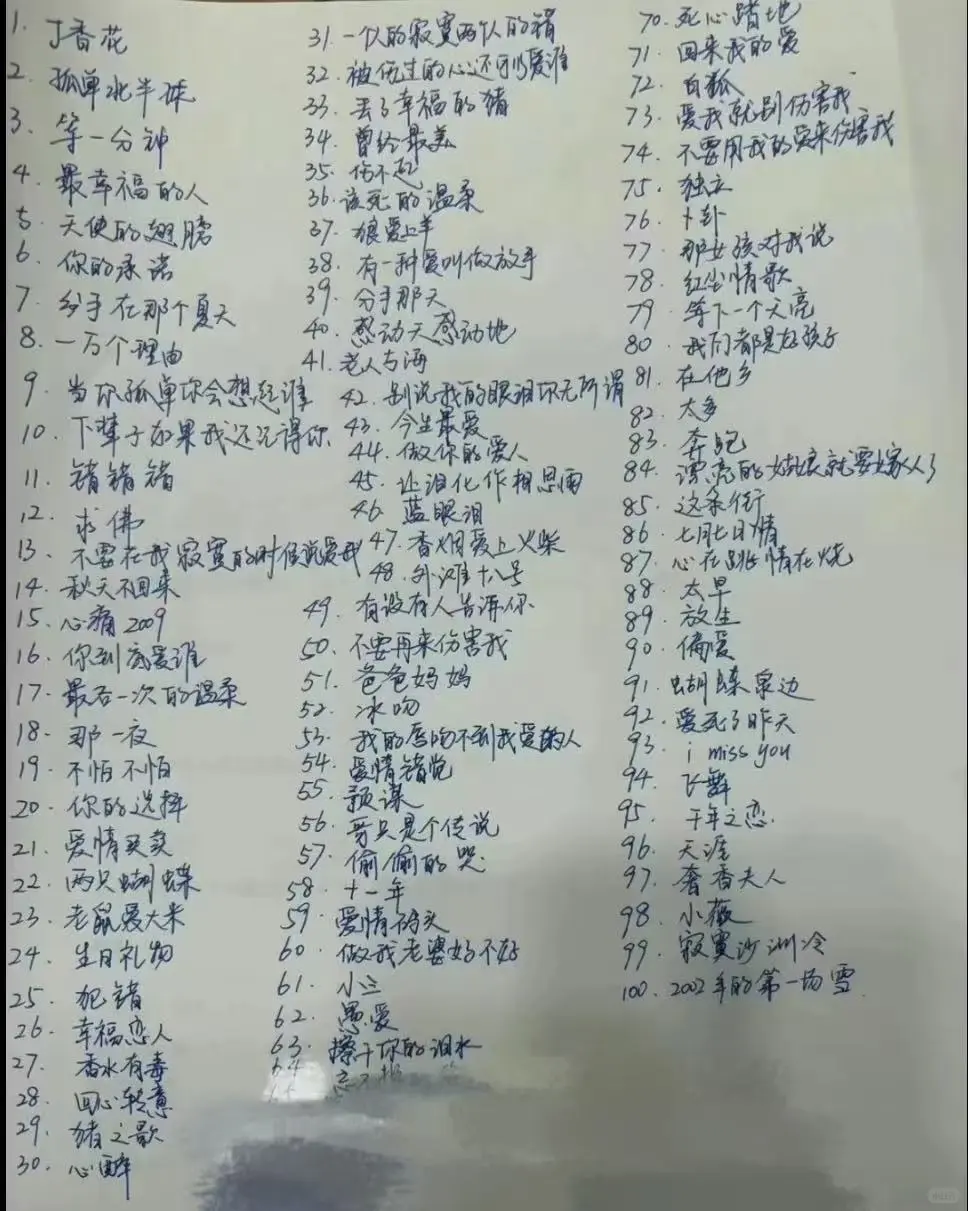 1. 丁香花
2. 孤单北半球
3. 等一分钟
4. 最幸福的人
5. 天使的翅膀
6. 你的承诺
7. 分手在那个夏天
8. 一万个理由
9. 当你孤单你会想起谁
10. 下辈子如果我还记得你
11. 错错错
12. 求佛
13. 不要在我寂寞的时候说爱我
14. 秋天不回来
15. 心痛2009
16. 你到底爱谁
17. 最后一次的温柔
18. 那一夜
19. 不怕不怕
20. 你的选择
21. 爱情买卖
22. 两只蝴蝶
23. 老鼠爱大米
24. 生日礼物
25. 犯错
26. 幸福恋人
27. 香水有毒
28. 回心转意
29. 猪之歌
30. 心醉
31. 一个人的寂寞两个人的错
32. 被伤过的心还可以爱谁
33. 丢了幸福的猪
34. 曾经最美
35. 伤不起
36. 该死的温柔
37. 狼爱上羊
38. 有一种爱叫做放手
39. 分手那天
40. 感动天感动地
41. 老人与海
42. 别说我的眼泪你无所谓
43. 今生最爱
44. 做你的爱人
45. 让泪化作相思雨
46. 蓝眼泪
47. 香烟爱上火柴
48. 外滩十八号
49. 有没有人告诉你
50. 不要再来伤害我
51. 爸爸妈妈
52. 冰吻
53. 我的唇吻不到我爱的人
54. 爱情错觉
55. 预谋
56. 哥只是个传说
57. 偷偷的哭
58. 十一年
59. 爱情码头
60. 做我老婆好不好
61. 小三
62. 愚爱
63. 擦干你的泪水
64
70. 死心踏地
71. 回来我的爱
72. 白狐
73. 爱我就别伤害我
74. 不要用我的爱来伤害我
75. 独立
76. 卜卦
77. 那女孩对我说
78. 红尘情歌
79. 等下一个天亮
80. 我们都是好孩子
81. 在他乡
82. 太多
83. 奔跑
84. 漂亮的姑娘就要嫁人了
85. 这条街
86. 七月七日情
87. 心在跳情在烧
88. 太早
89. 放生
90. 偏爱
91. 蝴蝶泉边
92. 爱死了昨天
93. i miss you
94. 飞舞
95. 千年之恋
96. 天涯
97. 奢香夫人
98. 小薇
99. 寂寞沙洲冷
100. 2002年的第一场雪